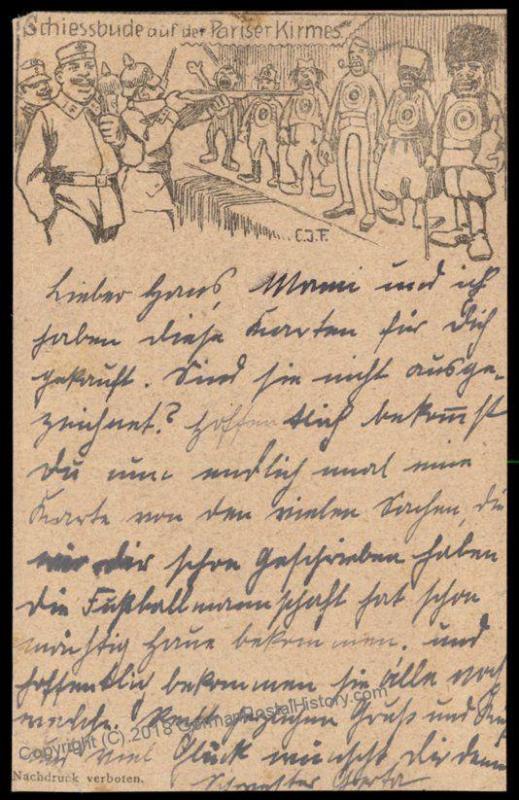 Schiessbude auf der Pariser Kirmes.
C.J.F.
Lieber Hans, Mami und ich
haben diese Karten für Dich
gekauft. Sind sie nicht ausge-
zeichnet? Hoffentlich bekommst
Du nun endlich mal eine
Karte von den vielen Sachen, die
wir Dir schon geschrieben haben
Die Fußballmannschaft hat schon
mächtig Haue bekommen. und
hoffentlich bekommen sie alle noch
welche. Recht herzlichen Gruß und
und viel Glück wünscht Dir deine
Schwester
Nachdruck verboten.
Copyright (C) 2018 GermanPostalHistory.com